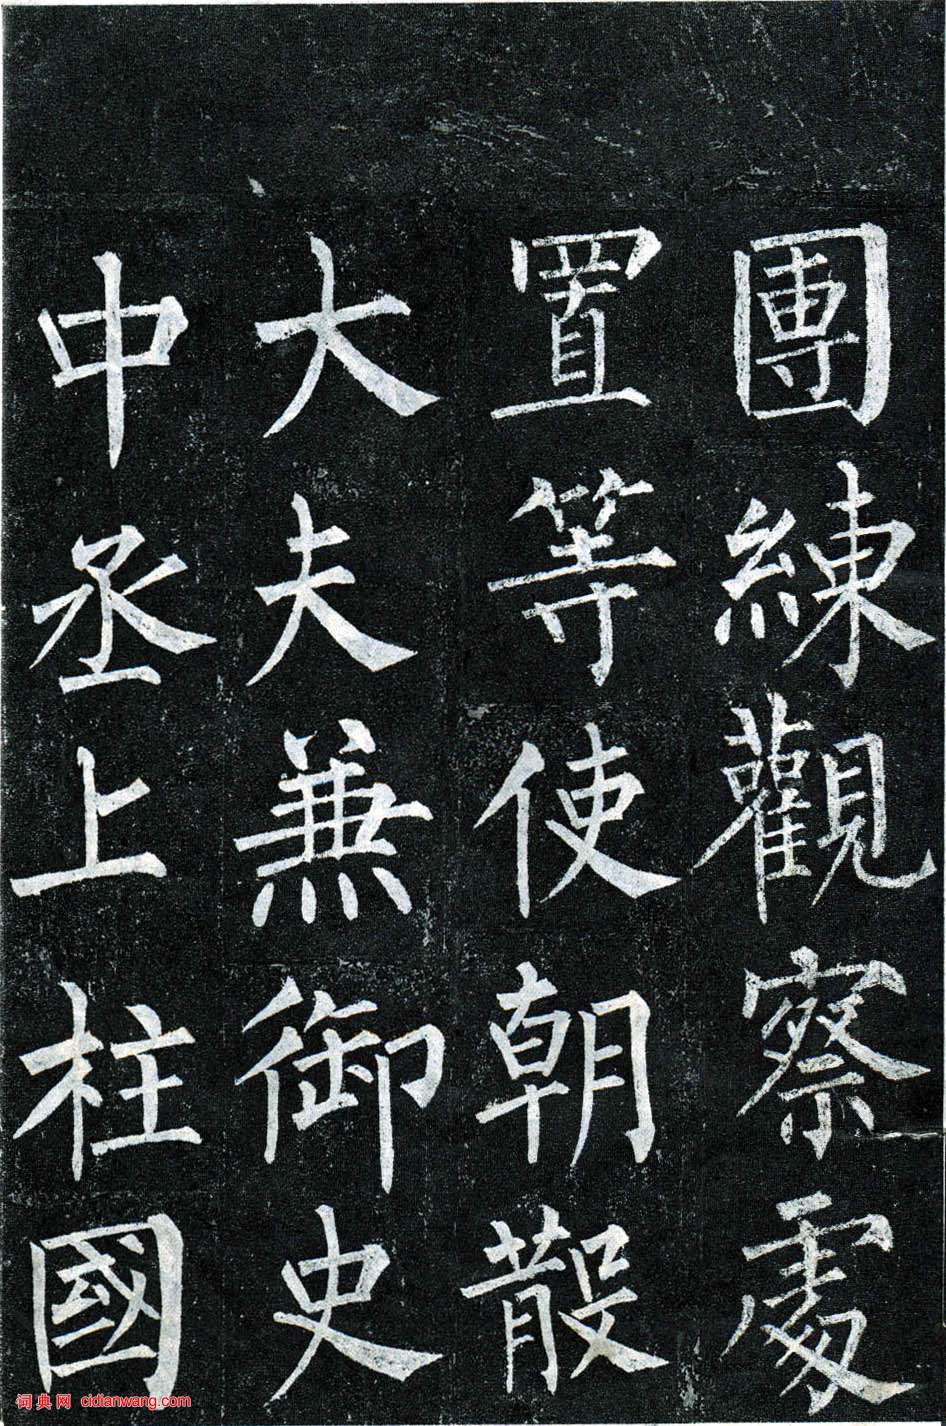 團練觀察處
置等使朝散
大夫兼御史
中丞上柱國
词典网 cidianwang.com